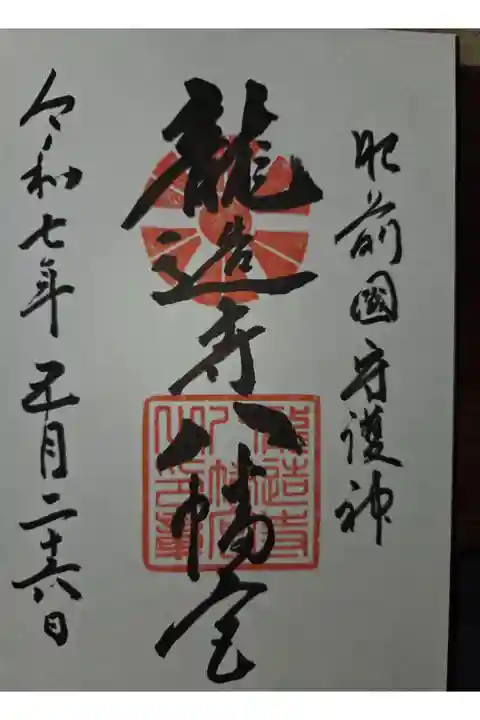 肥前國守護神
龍造寺八幡宮
令和七年五月二十六日